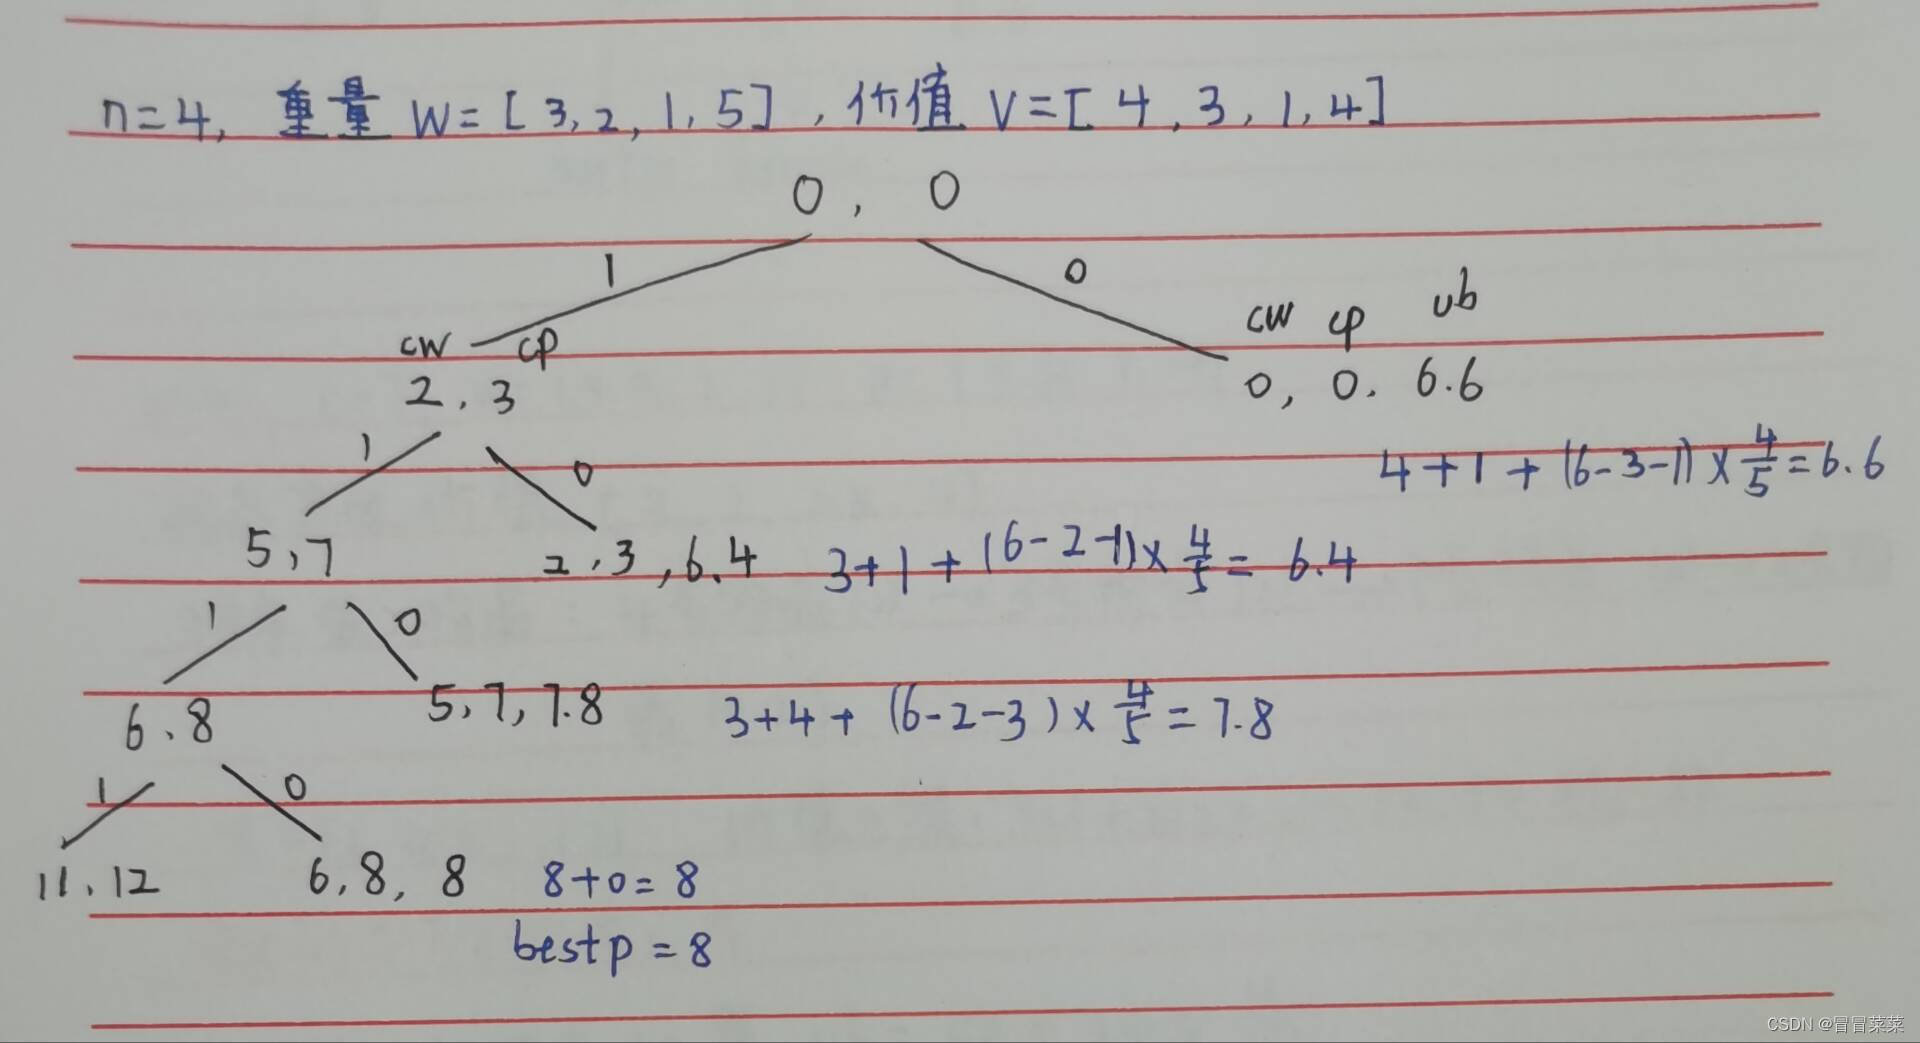 n=4, 重量 W=[3,2,1,5], 价值 V=[4,3,1,4]
0, 0
1 0
cw cp
cw cp ub
2, 3
0, 0. 6.6
1 0
4+1+(6-3-1)×4/5=6.6
5,7
2,3,6.4
3+1+(6-2-1)×4/5=6.4
1 0
6、8
5,7,7.8
3+4+(6-2-3)×4/5=7.8
1 0
11、12
6,8, 8
8+0=8
bestp=8
CSDN @冒冒菜菜